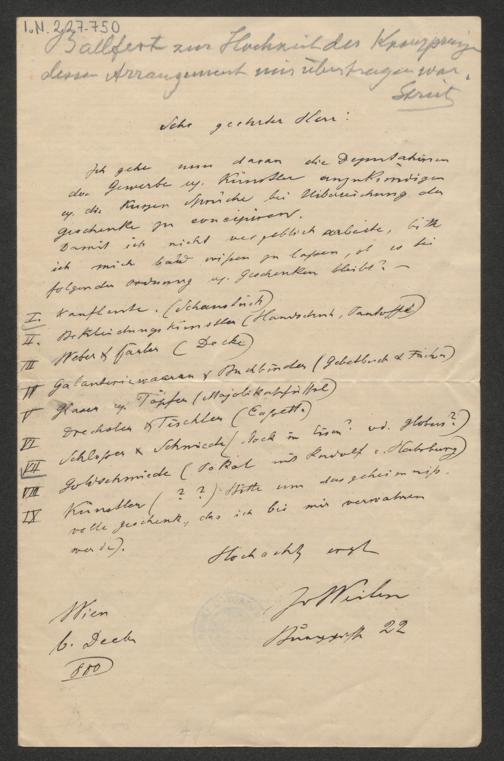 I.N. 227.750
Ballfest zur Hochzeit des Kronprinzen
dessen Arrangement mir übertragen war.
Sehr geehrter Herr!
Ich gehe nun daran die Deputationen
der Gewerbe u. Künstler anzukündigen
u. die kurzen Sprüche bei Überreichung der
Geschenke zu concipieren.
Damit ich nicht vergeblich arbeite, bitte
ich mich bald wissen zu lassen, ob es bei
folgender Ordnung u. Geschenken bleibt? –
I. Kaufleute. (Schaustück)
II. Bekleidungskünstler (Handschuh, Pantoffel)
III Weber & Färber (Decke)
IV Galanteriewaaren & Buchbinder (Gebetbuch & Fächer)
V Glaser u. Töpfer (Majolikaschüssel)
Drechsler & Tischler (Cassette)
VI Schlosser & Schmiede (Stock in Eisen? od. Globus?)
VII Goldschmiede (Pokal mit Rudolf v. Habsburg)
VIII
IX Künstler (? ?) Bitte um das geheimniß-
volle Geschenk, das ich bei mir verwahren
werde).
Hochachtungsvoll
Wien
6. Decb
880
JvWeilen
22